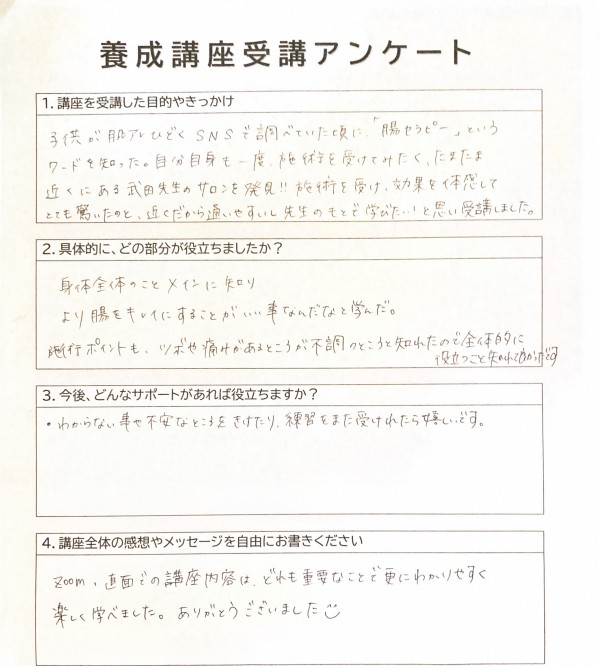 養成講座受講アンケート
1. 講座を受講した目的やきっかけ
子供が肌アレひどくSNSで調べていた頃に、「腸セラピー」という
ワードを知った。自分自身も一度、施術を受けてみたく、たまたま
近くにある武田先生のサロンを発見!! 施術を受け、効果を体感して
とても驚いたのと、近くだから通いやすいし先生のもとで学びたい！と思い受講しました。
2. 具体的に、どの部分が役立ちましたか？
身体全体のことメインに知り
より腸をキレイにすることがいい事なんだなと学んだ。
施術ポイントも、ツボや痛みがあるところが不調のところと知れたので全体的に
役立つこと知れてよかったです
3. 今後、どんなサポートがあれば役立ちますか？
・わからない事や不安なところをきけたり、練習をまた受けれたら嬉しいです。
4. 講座全体の感想やメッセージを自由にお書きください
zoom、直面での講座内容は、どれも重要なことで更にわかりやすく
楽しく学べました。ありがとうございました☺